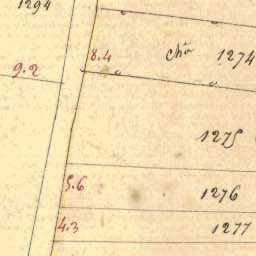 1294
8.4 ch^n 1274
9.2
1275
5.6 1276
4.3 1277